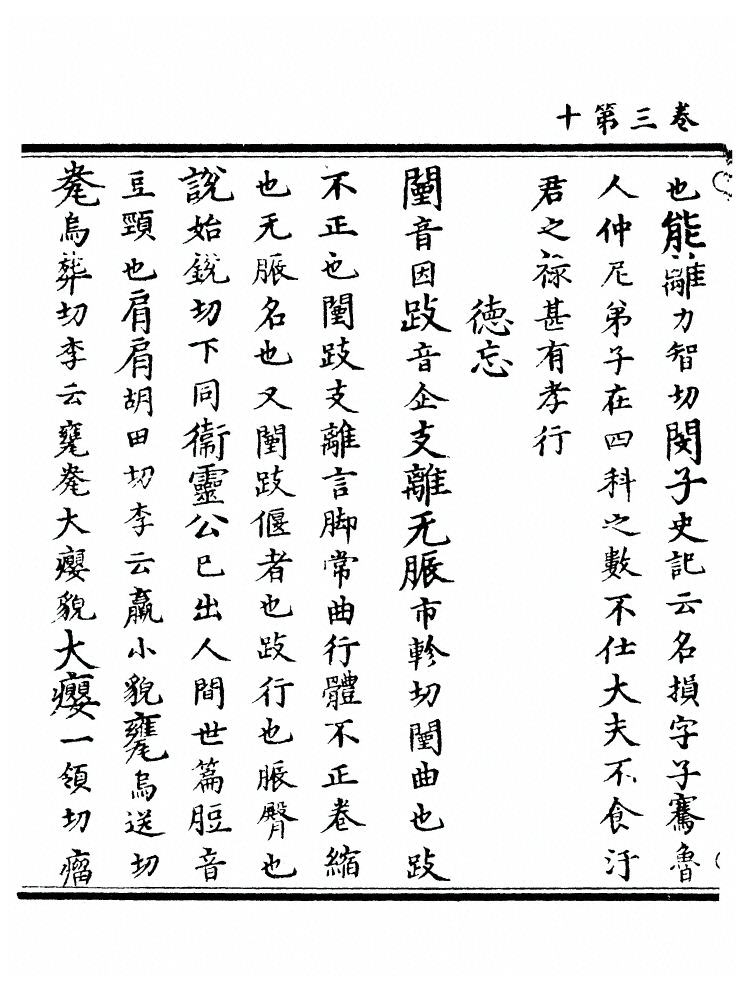 卷三第十
也能離力智切閔子史記云名損字子騫魯
人仲尼弟子在四科之數不仕大夫不食汙
君之祿甚有孝行
德忘
闉音因跂音企支離无脤市軫切闉曲也跂
不正也闉跂支離言脚常曲行體不正卷縮
也无脤名也又闉跂偃者也跂行也脤臀也
說始銳切下同衞靈公已出人間世篇脰音
豆頸也肩肩胡田切李云羸小貌㼜烏送切
㼜烏葬切李云甕㼜大癭貌大癭一領切瘤